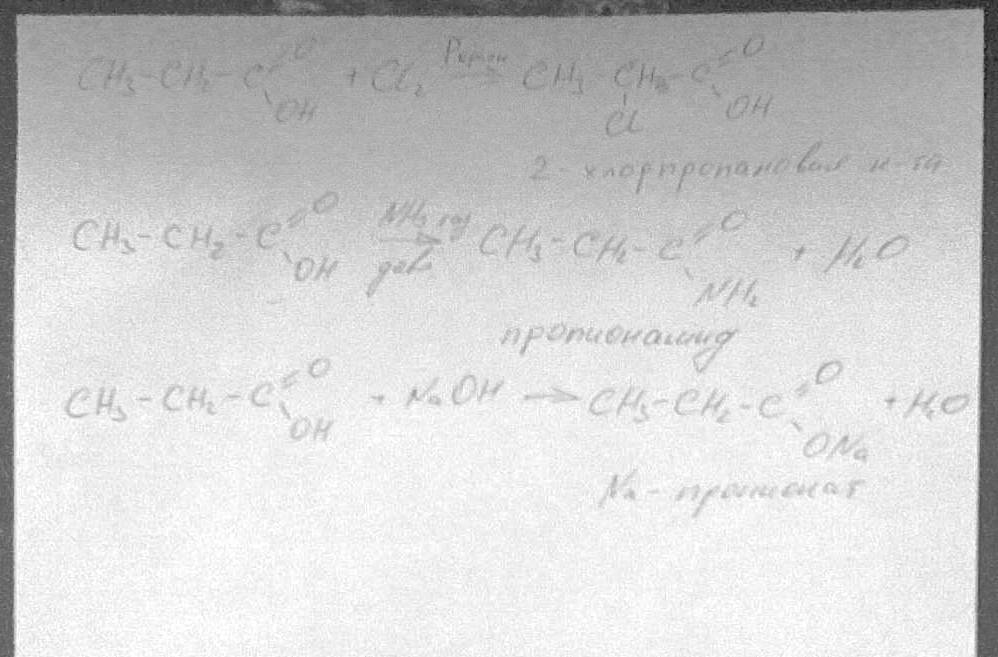 CH₃-CH₂-C=O OH + Cl₂ Pкрасн → CH₃ CH-C=O OH Cl
2-хлорпропановая к-та
CH₃-CH₂-C=O OH NH₃ газ → CH₃-CH₂-C=O NH₂ + H₂O
пропионамид
CH₃-CH₂-C=O OH + NaOH → CH₃-CH₂-C=O ONa + H₂O
Na-пропионат